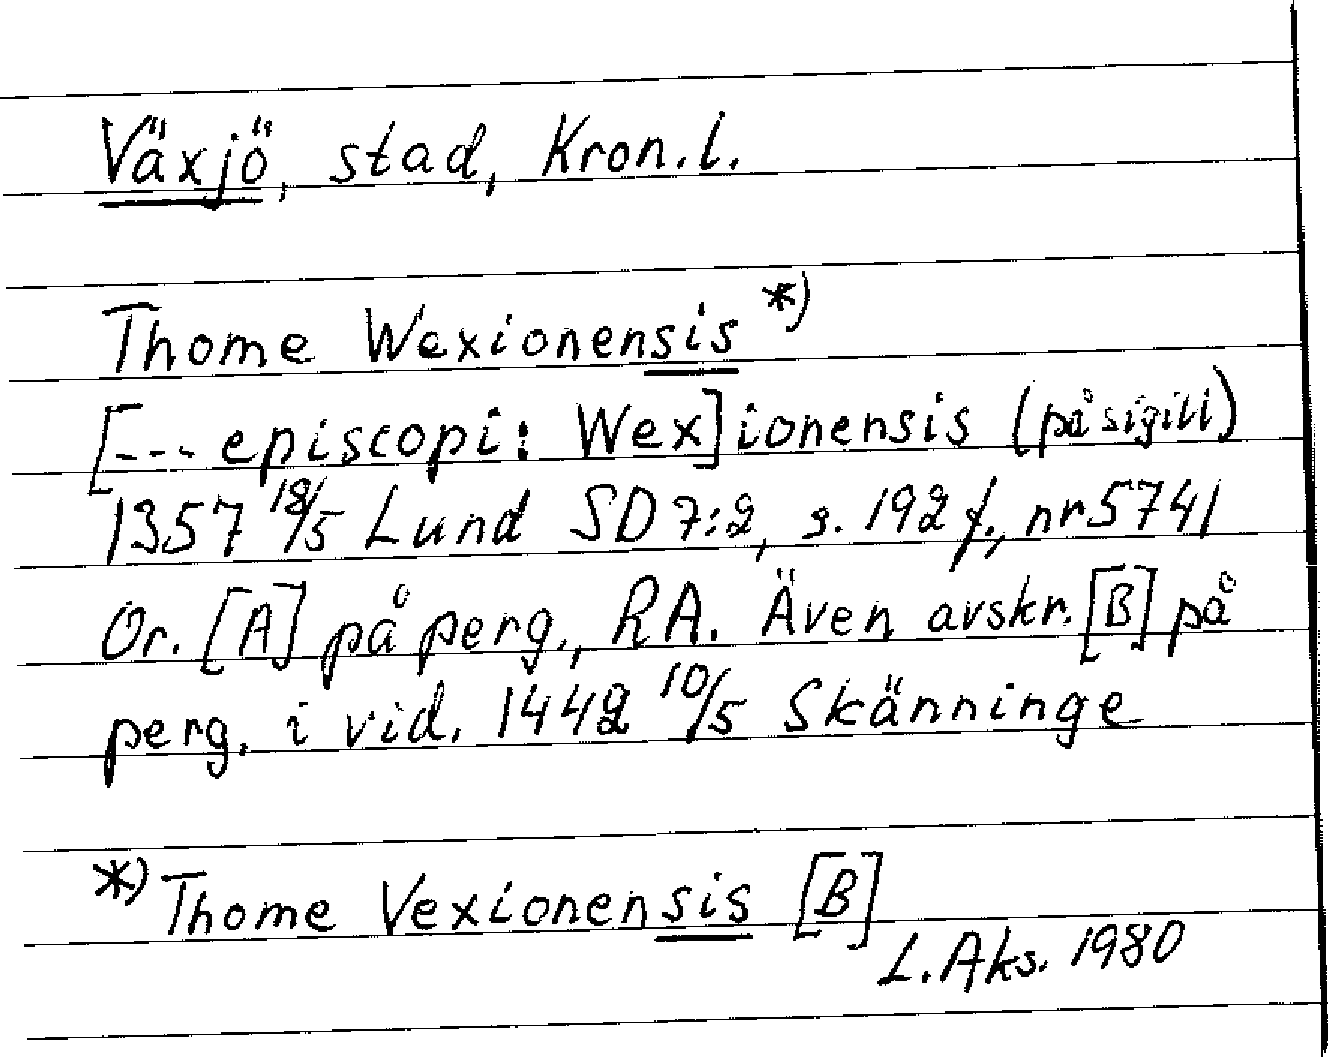 Växjö, stad, Kron.l.
Thome Wexionensis *)
[--- episcopi: Wex]ionensis (på sigill)
1357 18/5 Lund SD 7:2, s. 192 f., nr 5741
Or. [A] på perg., RA. Även avskr. [B] på
perg. i vid. 1442 10/5 Skänninge
*) Thome Vexionensis [B]
L. Aks. 1980